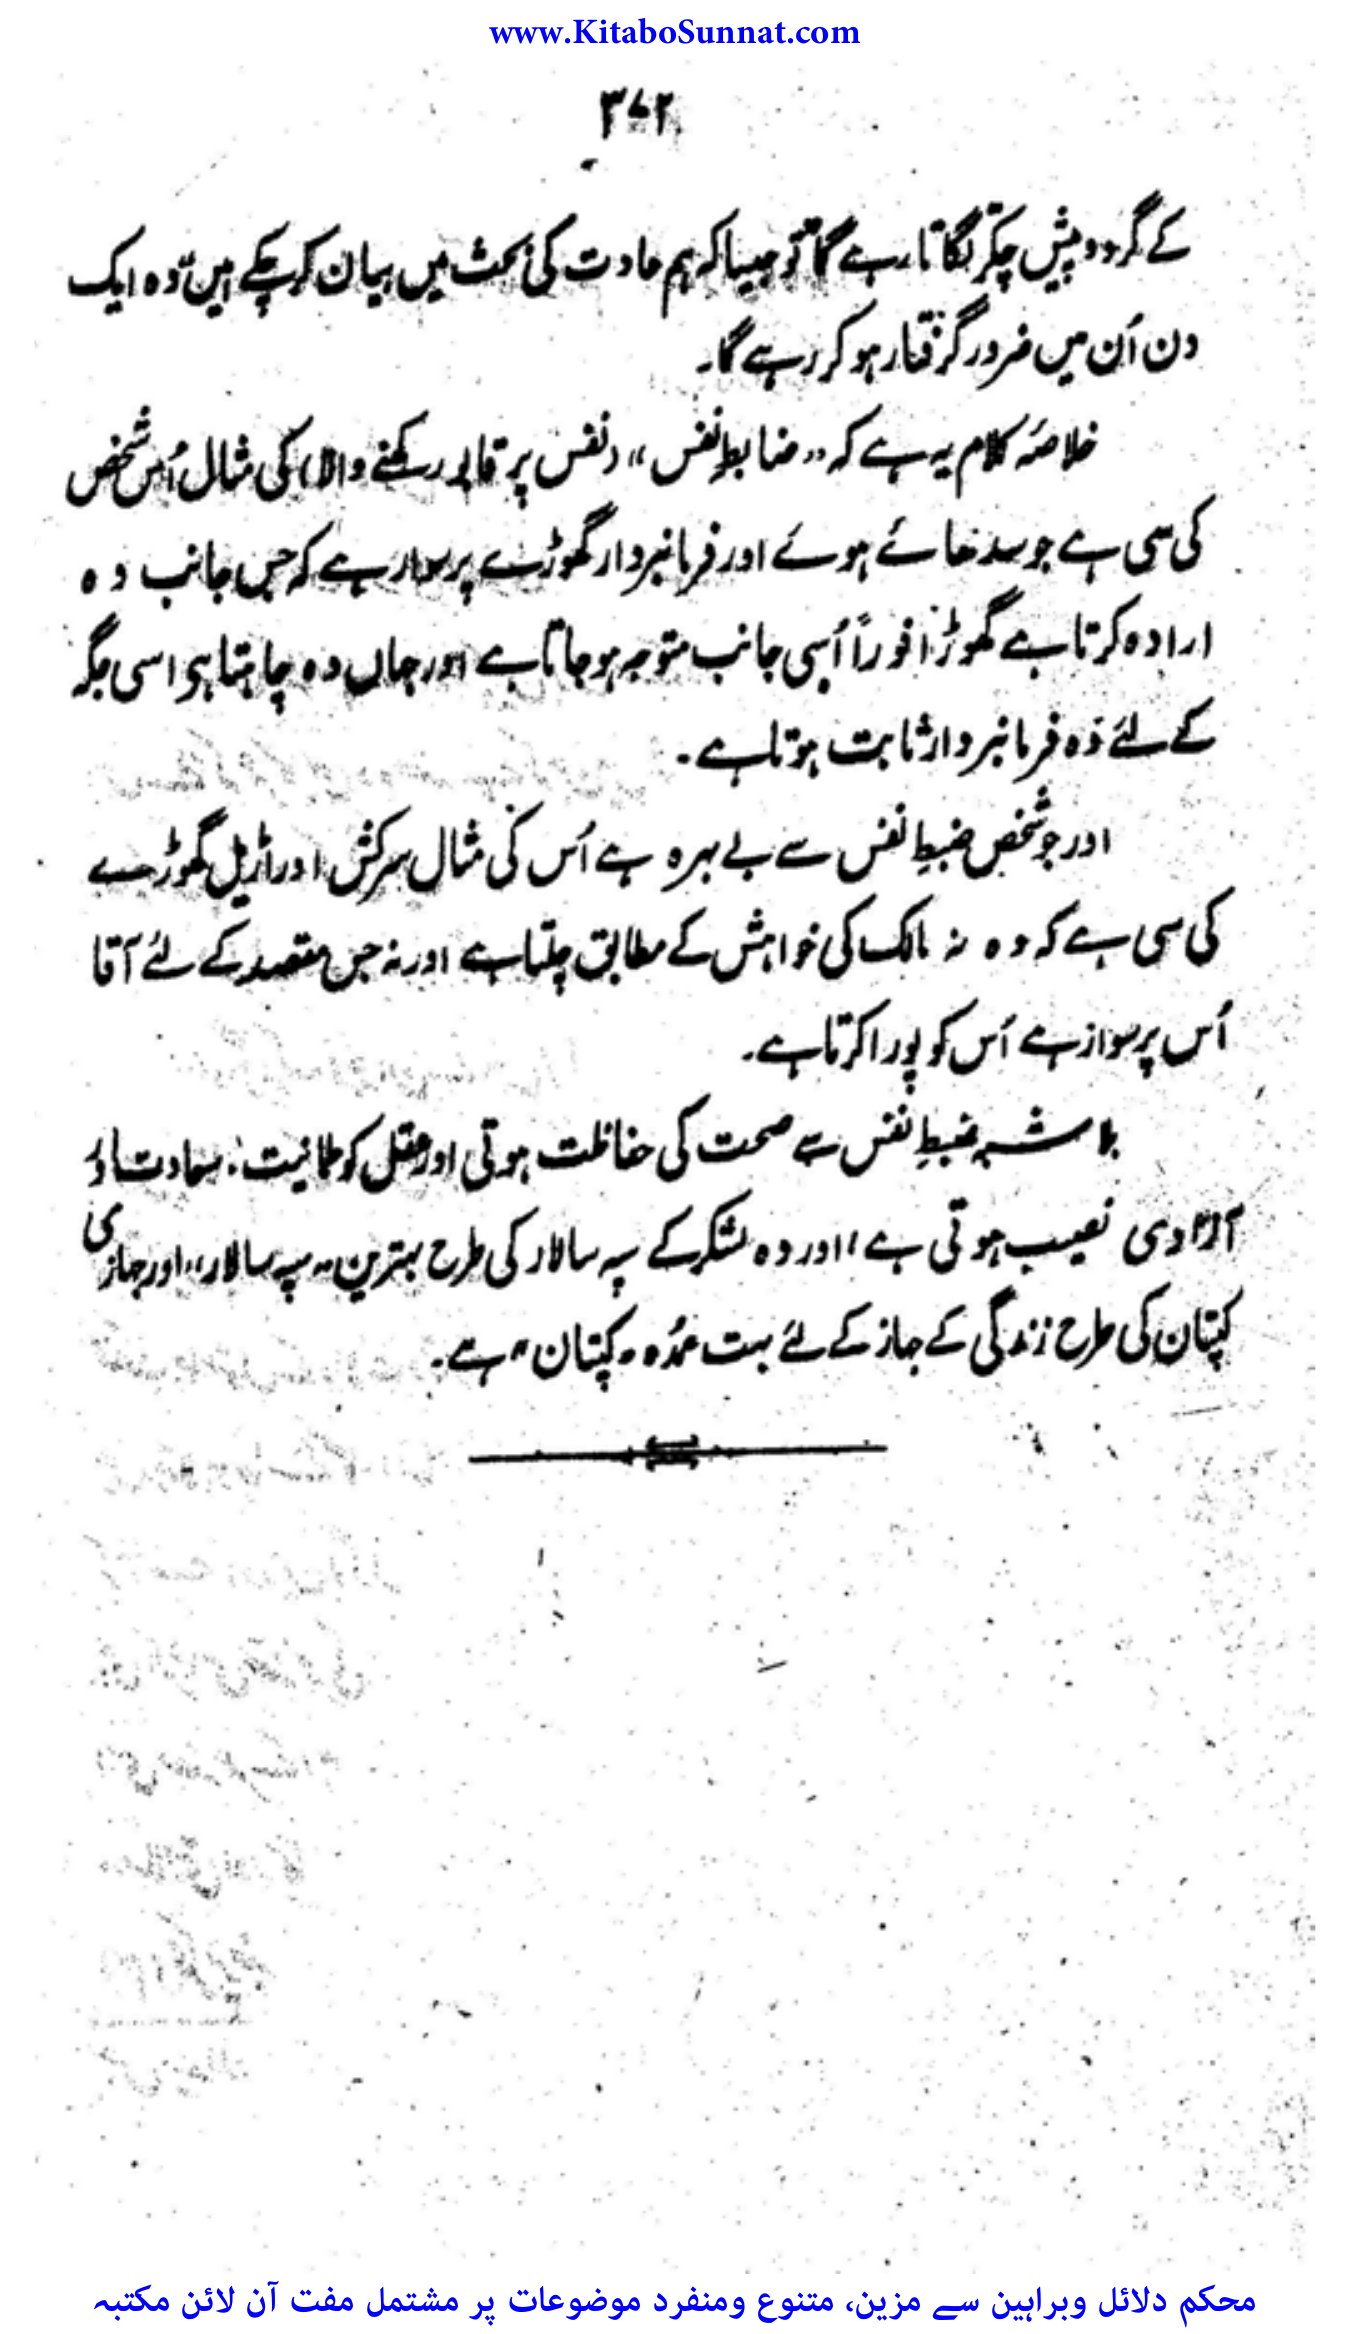 www.KitaboSunnat.com
۳۷۲
کے گرد و پیش چکر لگاتا رہے گا تو جیسا کہ ہم عادت کی بحث میں بیان کر چکے ہیں وہ ایک
دن اُن میں ضرور گرفتار ہو کر رہے گا۔
خلاصۂ کلام یہ ہے کہ "ضابطِ نفس" (نفس پر قابو رکھنے والا) کی مثال اُس شخص
کی سی ہے جو سدھائے ہوئے اور فرمانبردار گھوڑے پر سوار ہے کہ جس جانب وہ
ارادہ کرتا ہے گھوڑا فوراً اُسی جانب متوجہ ہو جاتا ہے اور جہاں وہ چاہتا ہی اسی جگہ
کے لئے وہ فرمانبردار ثابت ہوتا ہے۔
اور جو شخص ضبطِ نفس سے بے بہرہ ہے اُس کی مثال سرکش اور اڑیل گھوڑے
کی سی ہے کہ وہ نہ مالک کی خواہش کے مطابق چلتا ہے اور نہ جس مقصد کے لئے آقا
اُس پر سوار ہے اُس کو پورا کرتا ہے۔
بلاشبہ ضبطِ نفس سے صحت کی حفاظت ہوتی اور عقل کو طمانیت، سعادت اور
آزادی نصیب ہوتی ہے، اور وہ لشکر کے سپہ سالار کی طرح بہترین "سپہ سالار"، اور جہازی
کپتان کی طرح زندگی کے جہاز کے لئے بہت عمدہ "کپتان" ہے۔
محکم دلائل وبراہین سے مزین، متنوع ومنفرد موضوعات پر مشتمل مفت آن لائن مکتبہ